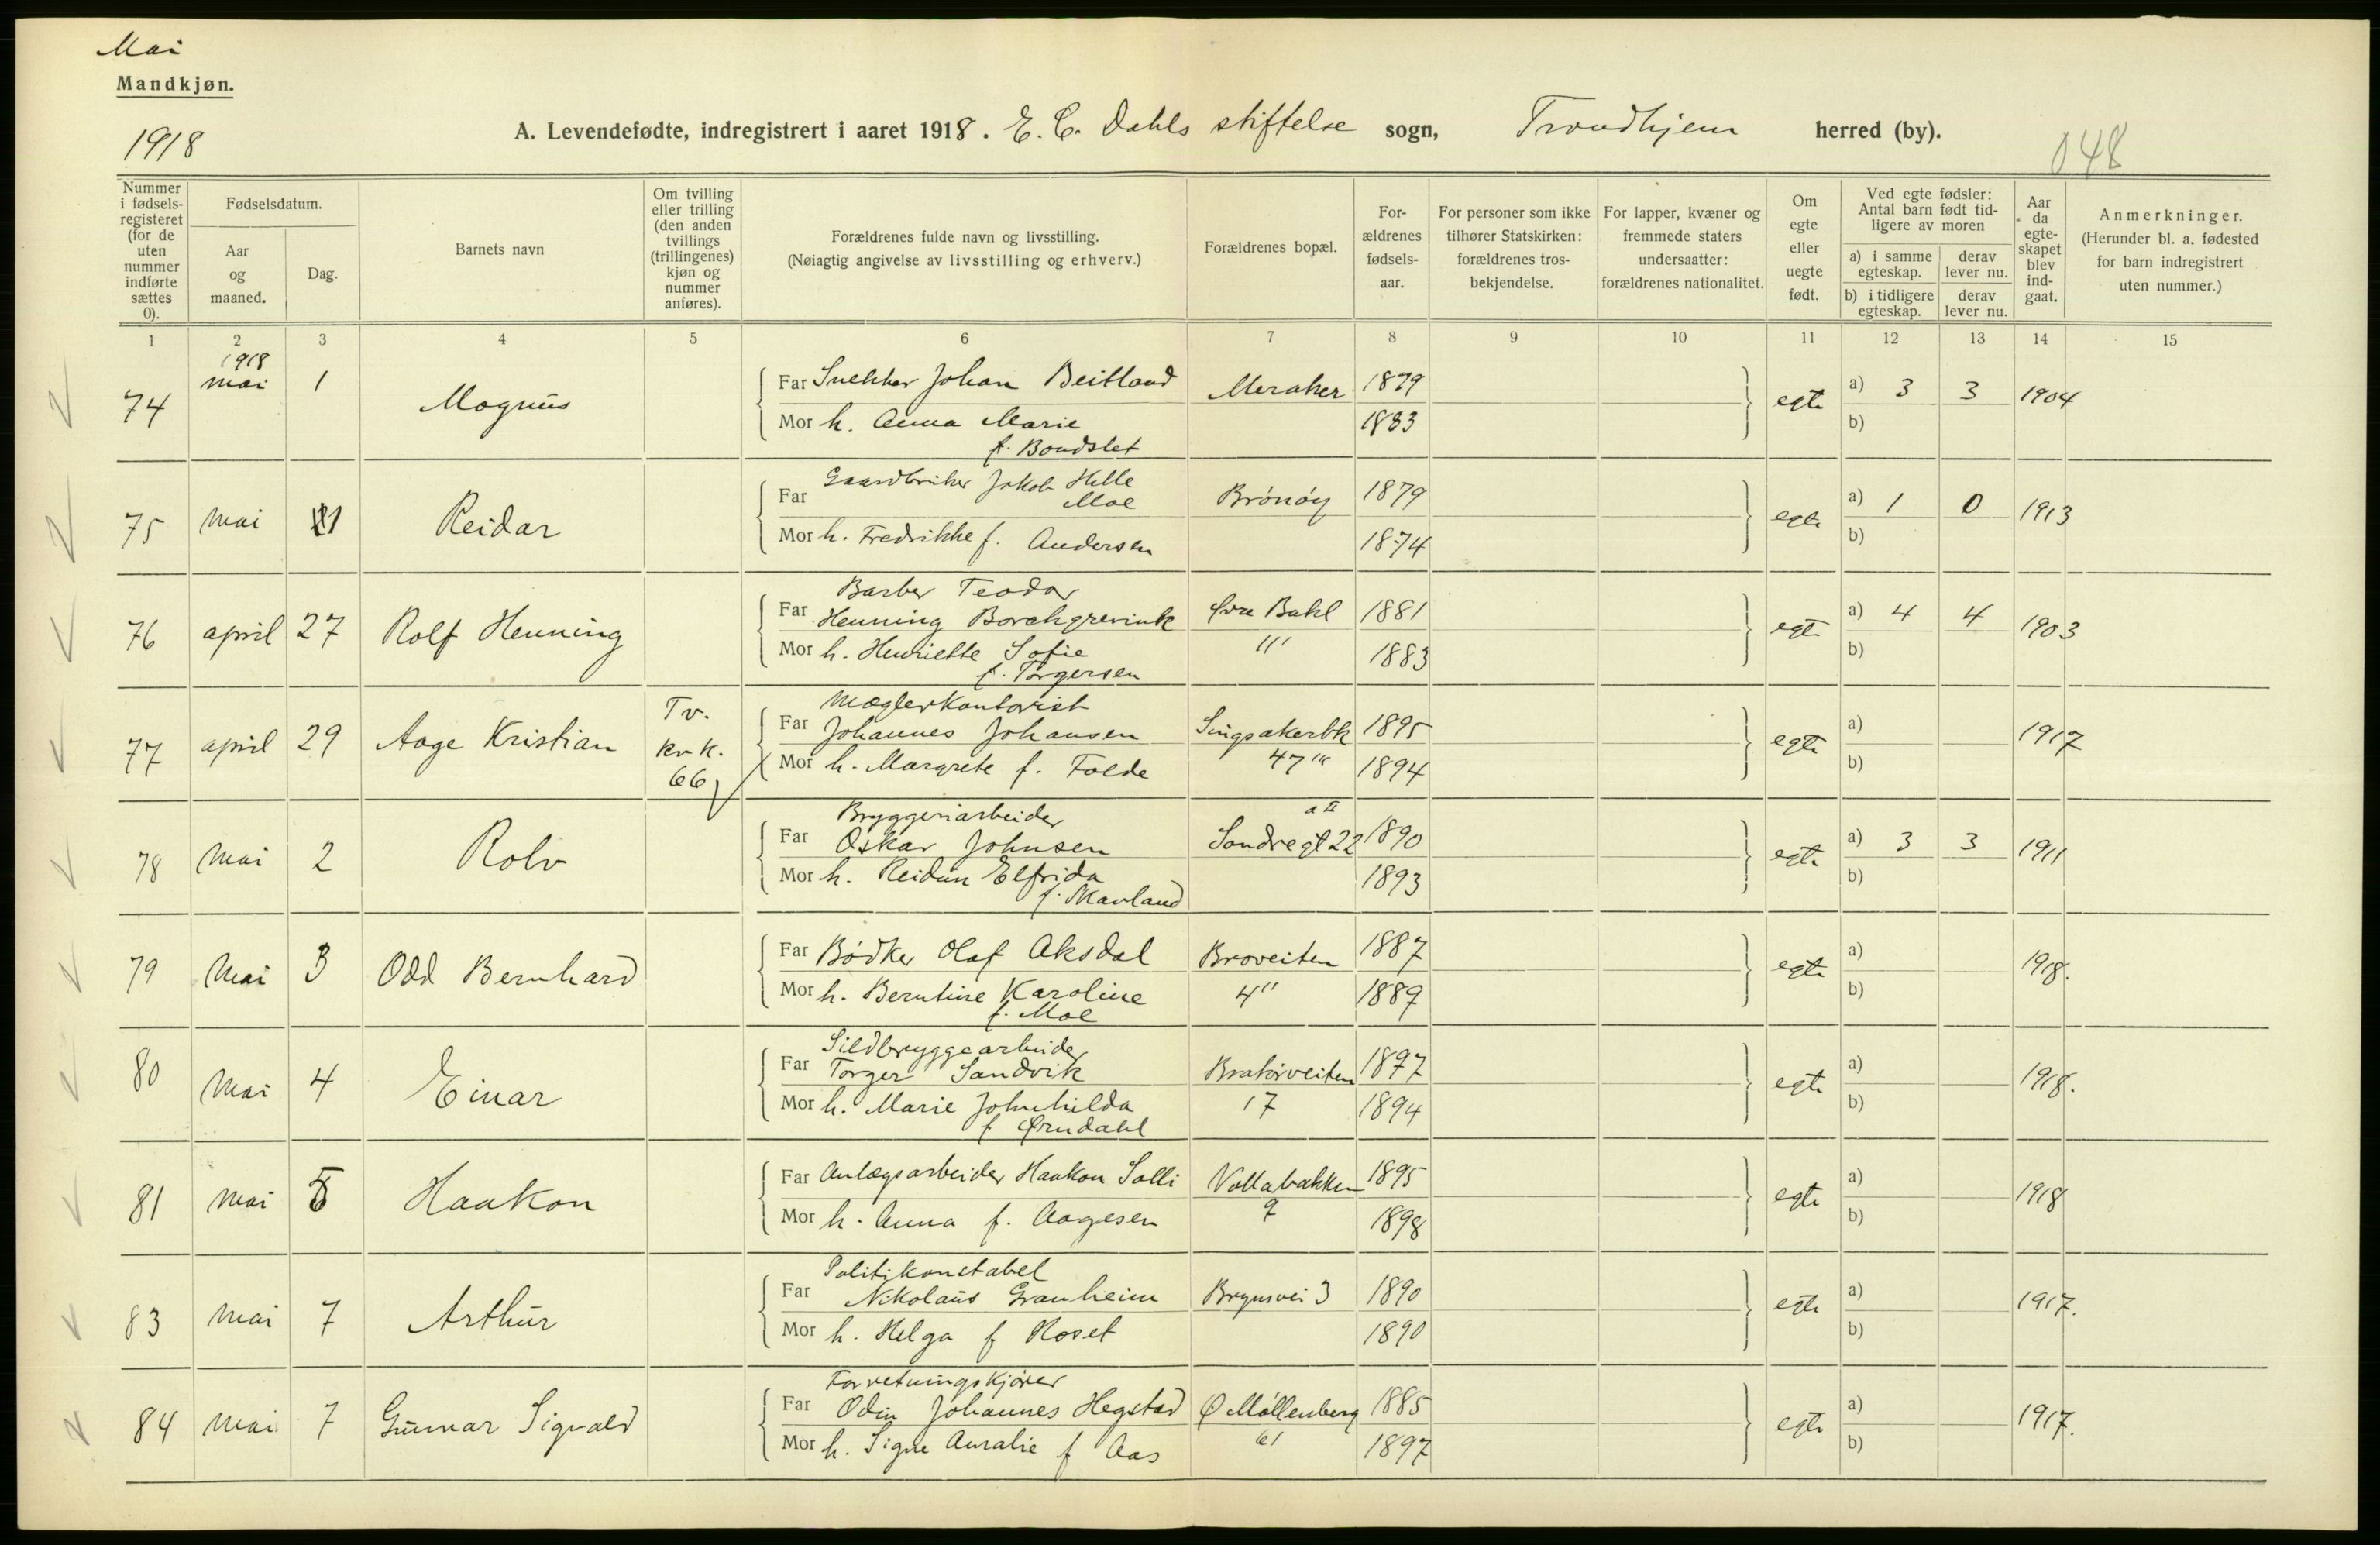 Mai
Mandkjøn.
1918
A. Levendefødte, indregistrert i aaret 1918. E. C. Dahls stiftelse sogn, Trondhjem herred (by).
048
Nummer i fødsels-registeret (for de uten nummer indførte sættes 0).
Fødselsdatum.
Aar og maaned.
Dag.
Barnets navn
Om tvilling eller trilling (den anden tvillings (trillingenes) kjøn og nummer anføres).
Forældrenes fulde navn og livsstilling.
(Nøiagtig angivelse av livsstilling og erhverv.)
Forældrenes bopæl.
For-ældrenes fødsels-aar.
For personer som ikke tilhører Statskirken: forældrenes tros-bekjendelse.
For lapper, kvæner og fremmede staters undersaatter: forældrenes nationalitet.
Om egte eller uegte født.
Ved egte fødsler: Antal barn født tid-ligere av moren
a) i samme egteskap.
derav lever nu.
b) i tidligere egteskap.
derav lever nu.
Aar da egte-skapet blev ind-gaat.
Anmerkninger.
(Herunder bl. a. fødested for barn indregistrert uten nummer.)
1 2 3 4 5 6 7 8 9 10 11 12 13 14 15
1918
74 mai 1 Magnus
Far Snekker Johan Beitland Meraker 1879
egte a) 3 3 1904
Mor h. Anna Marie 1883
b)
f. Bondslet
75 mai 1 Reidar
Gaardbruker Jakob Hille
Far Moe Brönöy 1879
egte a) 1 0 1913
Mor h. Fredrikke f. Andersen 1874
b)
76 april 27 Rolf Henning
Barber Teodor
Far Henning Borchgrevink Øvre Bakl 1881
egte a) 4 4 1903
Mor h. Henriette Sofie 111 1883
b)
f. Torgersen
77 april 29 Aage Kristian
Tv.
kv k.
66
Mæglerkontorist
Far Johannes Johansen Singsakerbk 1895
egte a) 1917
Mor h. Margrete f. Folde 47 1894
b)
78 mai 2 Rolv
Bryggeriarbeider
a II
Far Oskar Johnsen Sondregt 22 1890
egte a) 3 3 1911
Mor h. Reidun Elfrida 1893
b)
f. Skavland
79 Mai 3 Odd Bernhard
Far Bödker Olaf Aksdal Broveiten 1887
egte a) 1918.
Mor h. Berntine Karoline 4" 1889
b)
f. Moe
80 Mai 4 Einar
Sildbryggearbeider
Far Torger Sandvik Bratörveiten 1897
egte a) 1918.
Mor h. Marie Johnhilda 17 1894
b)
f Ørndahl
81 mai 5 Haakon
Far Anlægsarbeider Haakon Solli Vollabakken 1895
egte a) 1918
Mor h. Anna f. Aagesen 9 1898
b)
83 mai 7 Arthur
Politikonstabel
Far Nikolaus Granheim Brynsvei 3 1890
egte a) 1917.
Mor h. Helga f Roset 1890
b)
84 mai 7 Gunnar Sigvald
Forretningskjörer
Far Odin Johannes Hegstad Ø Möllenberg 1885
egte a) 1917.
Mor h. Signe Auralie f Aas 61 1897
b)